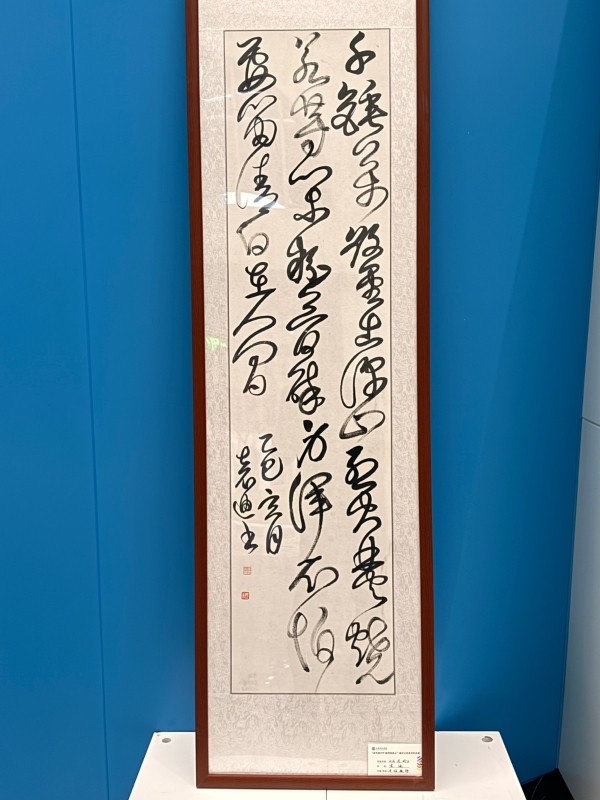 千錘萬鑿出深山烈火焚燒
若等閒粉骨碎身渾不怕
要留清白在人間
乙巳亥月
袁迪书